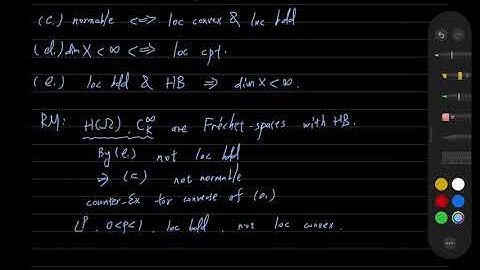 (c.) normable <=> loc convex & loc bdd
(d.) dim X < ∞ <=> loc cpt.
(e.) loc bdd & HB => dim X < ∞.
RM: H(Ω), C_K^∞ are Fréchet-spaces with HB.
By (e.) not loc bdd
=> (c) not normable
counter-Ex for converse of (a.)
L^p, 0<p<1, loc bdd, not loc convex.